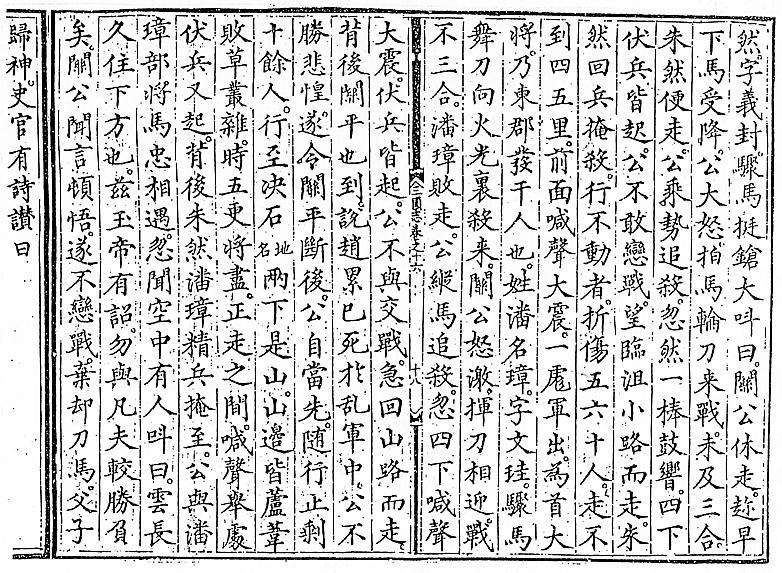 然字義封驟馬挺鎗大呌曰關公休走趂早
下馬受降公大怒拍馬輪刀来戰未及三合
朱然便走公乘勢追殺忽然一棒鼓響四下
伏兵皆起公不敢戀戰望臨沮小路而走朱
然回兵掩殺行不動者折傷五六十人走不
到四五里前面喊聲大震一彪軍出為首大
將乃東郡發干人也姓潘名璋字文珪驟馬
舞刀向火光裏殺来關公怒激揮刀相迎戰
不三合潘璋敗走公縱馬追殺忽四下喊聲
三國志卷之十六 十八
大震伏兵皆起公不與交戰急回山路而走
背後關平也到說趙累已死於乱軍中公不
勝悲惶遂令關平斷後公自當先随行止剰
十餘人行至决石地名兩下是山山邊皆蘆葦
敗草叢雜時五更將盡正走之間喊聲舉處
伏兵又起背後朱然潘璋精兵掩至公與潘
璋部將馬忠相遇忽聞空中有人呌曰雲長
久住下方也兹玉帝有詔勿與凡夫較勝負
矣關公聞言頓悟遂不戀戰棄却刀馬父子
歸神史官有詩讃曰